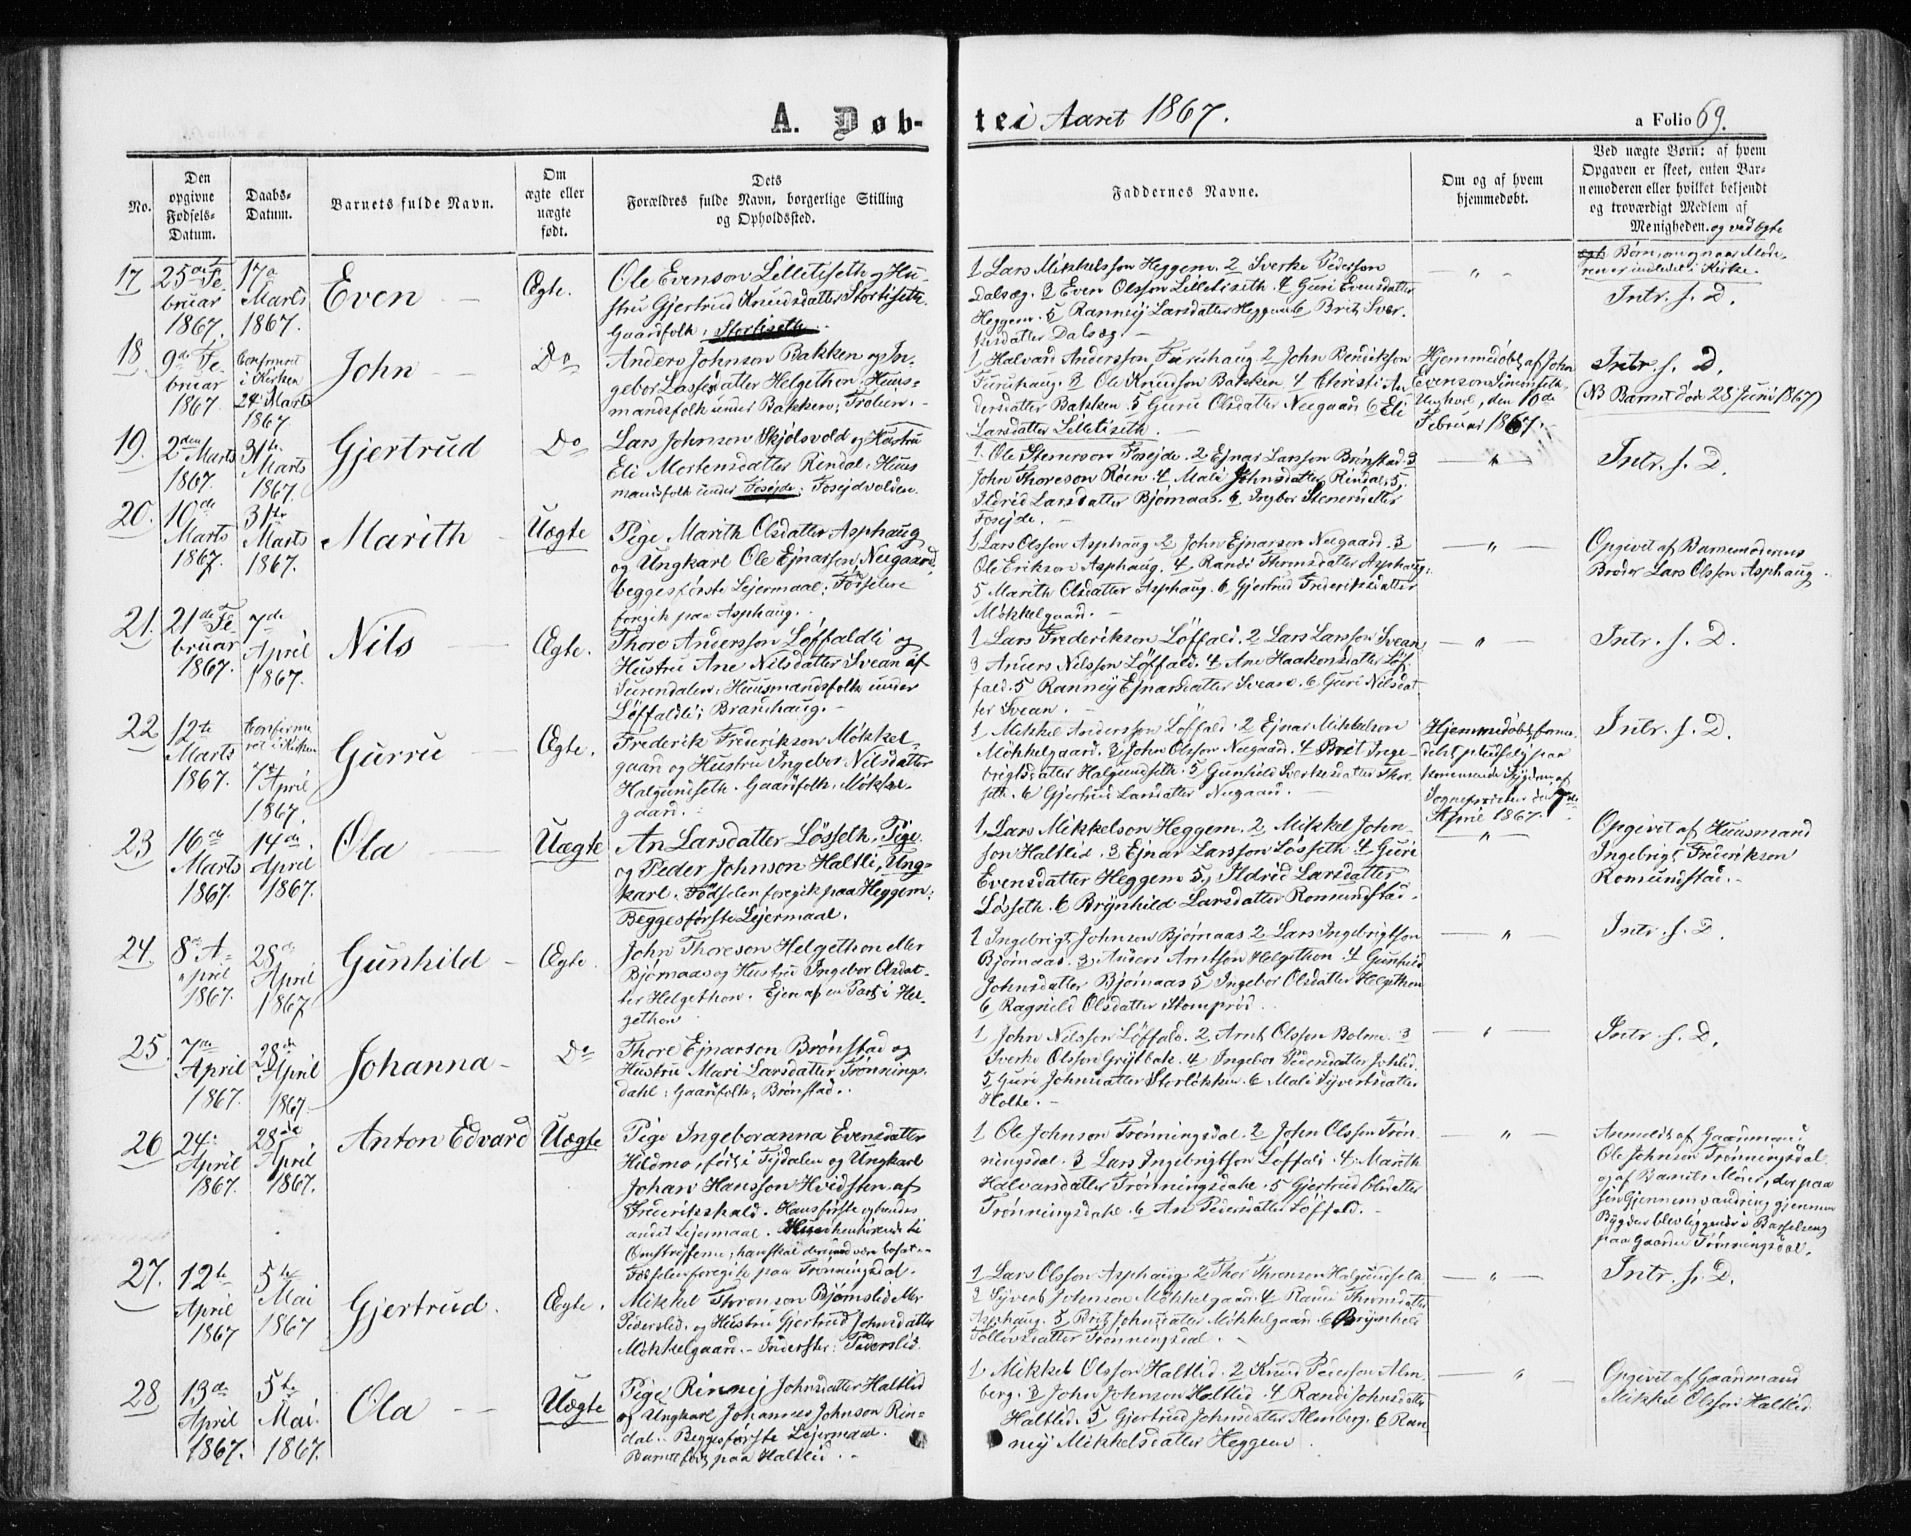 A. Døb-
te i Aaret 1867.
a Folio 69.
No.
Den
opgivne
Fødsels-
Datum.
Daabs-
Datum.
Barnets fulde Navn.
Om
ægte eller
uægte
født.
Dets
Forældres fulde Navn, borgerlige Stilling
og Opholdssted.
Faddernes Navne.
Om og af hvem
hjemmedøbt.
Ved uægte Børn: af hvem
Opgaven er skeet, enten Bar-
nemoderen eller hvilket bekjendt
og troværdigt Medlem af
Menigheden. og ved ægte
Børn, om og naar Mode-
ren er indledet i Kirke.
17
25de Fe-
bruar
1867.
17de
Marts
1867.
Even
Ægte.
Ole Evenson Lilletiseth og Hu-
stru Gjertrud Knudsdatter Stortiseth.
Gaardfolk; Stortiseth.
1 Lars Mikkelsson Heggem. 2 Sverke Pederson
Dalsæg. 3 Even Olsson Lilletiseth. 4 Guri Evensdatter
Heggem. 5 Ranney Larsdatter Heggem 6 Brit Sver-
kesdatter Dalsæg.
Intr. s. D.
18.
9de Fe-
bruar
1867
Confirmeret
i Kirken
24 Marts
1867
John
Do
Anders Johnson Bakken og In-
gebor Lassesdatter Helgethon. Huus-
mandsfolk under Bakken; Trøen.
1 Halvard Andersson Furuhaug. 2 John Bendikson
Furuhaug. 3 Ole Knudson Bakken. 4 Christi An-
dersdatter Bakken. 5 Guru Olsdatter Neegaard 6 Eli
Larsdatter Lilletiseth.
Hjemmedøbt af John
Evenson Simonseth,
Ungkarl, den 10de
Februar 1867.
Intr. s. D.
(NB Barnet døde 28 Juni 1867)
19.
2den Marts
1867.
31te
Marts
1867.
Gjertrud
Do
Lars Johnson Skjølsvold og Hustru
Eli Mortensdatter Rindal. Huus-
mandsfolk under Fosejde; Fosejdvolden.
1. Ole Stenerson Fosejde. 2 Ejnar Larsson Brønstad. 3
John Thoreson Røen. 4 Mali Johnsdatter Rindal. 5
Ildrid Larsdatter Bjørnaas. 6 Ingbor Stenersdatter
Fosejde.
Intr. s. D.
20.
10de
Marts
1867.
31te
Marts
1867.
Marith
Uægte
Pige Marith Olsdatter Asphaug
og Ungkarl Ole Ejnarsen Neegaard.
begges første Lejermaal; Fødselen
foregik paa Asphaug.
1 Lars Olsson Asphaug 2 John Ejnarson Neegaard. 3
Ole Erikson Asphaug. 4 Randi Thronsdatter Asphaug.
5 Marith Olsdatter Asphaug. 6 Gjertrud Frederiksdatter
Møkkelgaard.
Opgivet af Barnemoderens
Broder Lars Olsson Asphaug
21.
21de Fe-
bruar
1867.
7de
April
1867.
Nils
Ægte.
Thore Andersson Løffaldli og
Hustru Ane Nilsdatter Svean af
Surendalen; Huusmandsfolk under
Løffaldli; Brandhaug.
1 Lars Frederikson Løffald. 2 Lars Larsson Svean
3 Anders Nilsson Løffald. 4 Ane Haakonsdatter Løf-
fald. 5 Ranney Ejnarsdatter Svean. 6 Guri Nilsdat-
ter Svean.
Intr. s. D.
22
12te
Marts
1867.
Confirme-
ret i Kirken
7de April
1867.
Gurru
Ægte.
Frederik Frederikson Møkkel-
gaard og Hustru Ingebor Nilsdatter
Halgundseth. Gaardfolk. Møkkel-
gaard.
1 Mikkel Andersson Løffald. 2 Ejnar Mikkelson
Møkkelgaard. 3 John Olsson Neegaard. 4 Brit Inge-
brigtsdatter Halgundseth. 5 Gunhild Sverkesdatter Thor-
seth. 6 Gjertrud Larsdatter Neegaard.
Hjemmedøbt forme-
delst pludselig paa-
kommende Sygdom af
Sognepresten den 7de
April 1867.
Intr. s. D.
23
16de
Marts
1867.
14de
April
1867.
Ola
Uægte
An Larsdatter Løsseth, Pige
og Peder Johnson Haltli, Ung-
karl. Fødselen foregik paa Heggem;
Begges første Lejermaal.
1. Lars Mikkelson Heggem. 2 Mikkel John-
son Haltlid. 3 Ejnar Larsson Løsseth 4 Guri
Evensdatter Heggem 5, Ildrid Larsdatter
Løsseth. 6 Brynhild Larsdatter Romundstad.
Opgivet af Huusmand
Ingebrigt Frederikson
Romundstad.
24.
8de A-
pril
1867.
28de
April
1867
Gunhild
Ægte.
John Thoreson Helgethon eller
Bjørnaas og Hustru Ingebor Olsdat-
ter Helgethon. Ejer af en Part i Hel-
gethon
1 Ingebrigt Johnson Bjørnaas 2 Lars Ingebrigtson
Bjørnaas. 3 Anders Arntson Helgethon 4 Gunhild
Johnsdatter Bjørnaas 5 Ingebor Olsdatter Helgethon
6 Ragnild Olsdatter Stomprød.
Intr. s. D.
25.
7de
April
1867.
28de
April
1867.
Johanna
Do
Thore Ejnarson Brønstad og
Hustru Mari Larsdatter Trønnings-
dahl; Gaardfolk; Brønstad.
1 John Nilsson Løffald. 2 Arnt Olsson Bolme. 3
Sverke Olsson Grytbak. 4 Ingebor Pedersdatter Johlid.
5 Guri Johnsdatter Storløkken. 6 Mali Syvertsdatter
Holte.
Intr. s. D.
26
24de
April
1867.
28de
April
1867.
Anton Edvard
Uægte
Pige Ingeboranna Evensdatter
Hildmo, født i Tydalen og Ungkarl
Johan Hansson Hvidsten af
Frederikshald. Hans første og hendes
andet Lejermaal.
Fødselen foregik paa Trønningsdal.
1 Ole Johnson Trønningsdal. 2 John Olsson Trøn-
ningsdal. 3 Lars Ingebrigtson Løffald. 4. Marith
Halvarsdatter Trønningsdahl. 5 Gjertrud Olsdatter
Trønningsdahl. 6. An Pedersdatter Løffald.
Anmeldt af Gaardmand
Ole Johnson Trønningsdal
og af Barnets Moder, der paa
sin Gjennemvandring gjennem
Bygden blev liggende i Barselseng
paa Gaarden Trønningsdal.
27.
12te
April
1867
5te
Mai
1867
Gjertrud.
Ægte.
Mikkel Thronson Bjørnslid eller
Pederslid. og Hustru Gjertrud Johnsdatter
Møkkelgaard. Inderster; Pederslid.
1 Lars Olsson Asphaug 2 Thor Thronson Halgundseth.
3 Syvert Johnson Møkkelgaard. 4 Randi Thronsdatter
Asphaug. 5 Brit Johnsdatter Møkkelgaard. 6 Brynhild
Tollevsdatter Trønningsdal.
Intr. s. D.
28
13de
April
1867.
5te
Mai
1867.
Ola
Uægte
Pige Rinnej Johnsdatter Haltlid
og Ungkarl Johannes Johnson Rin-
dal. Begges første Lejermaal.
Barnet født paa Haltlid.
1. Mikkel Olsson Haltlid. 2 Knud Pederson Alm-
berg. 3 John Johnson Haltlid. 4 Randi Johnsdatter
Haltlid. 5 Gjertrud Johnsdatter Almberg. 6 Ran-
nej Mikkelsdatter Heggem.
Opgivet af Gaardmand
Mikkel Olsson Haltlid.